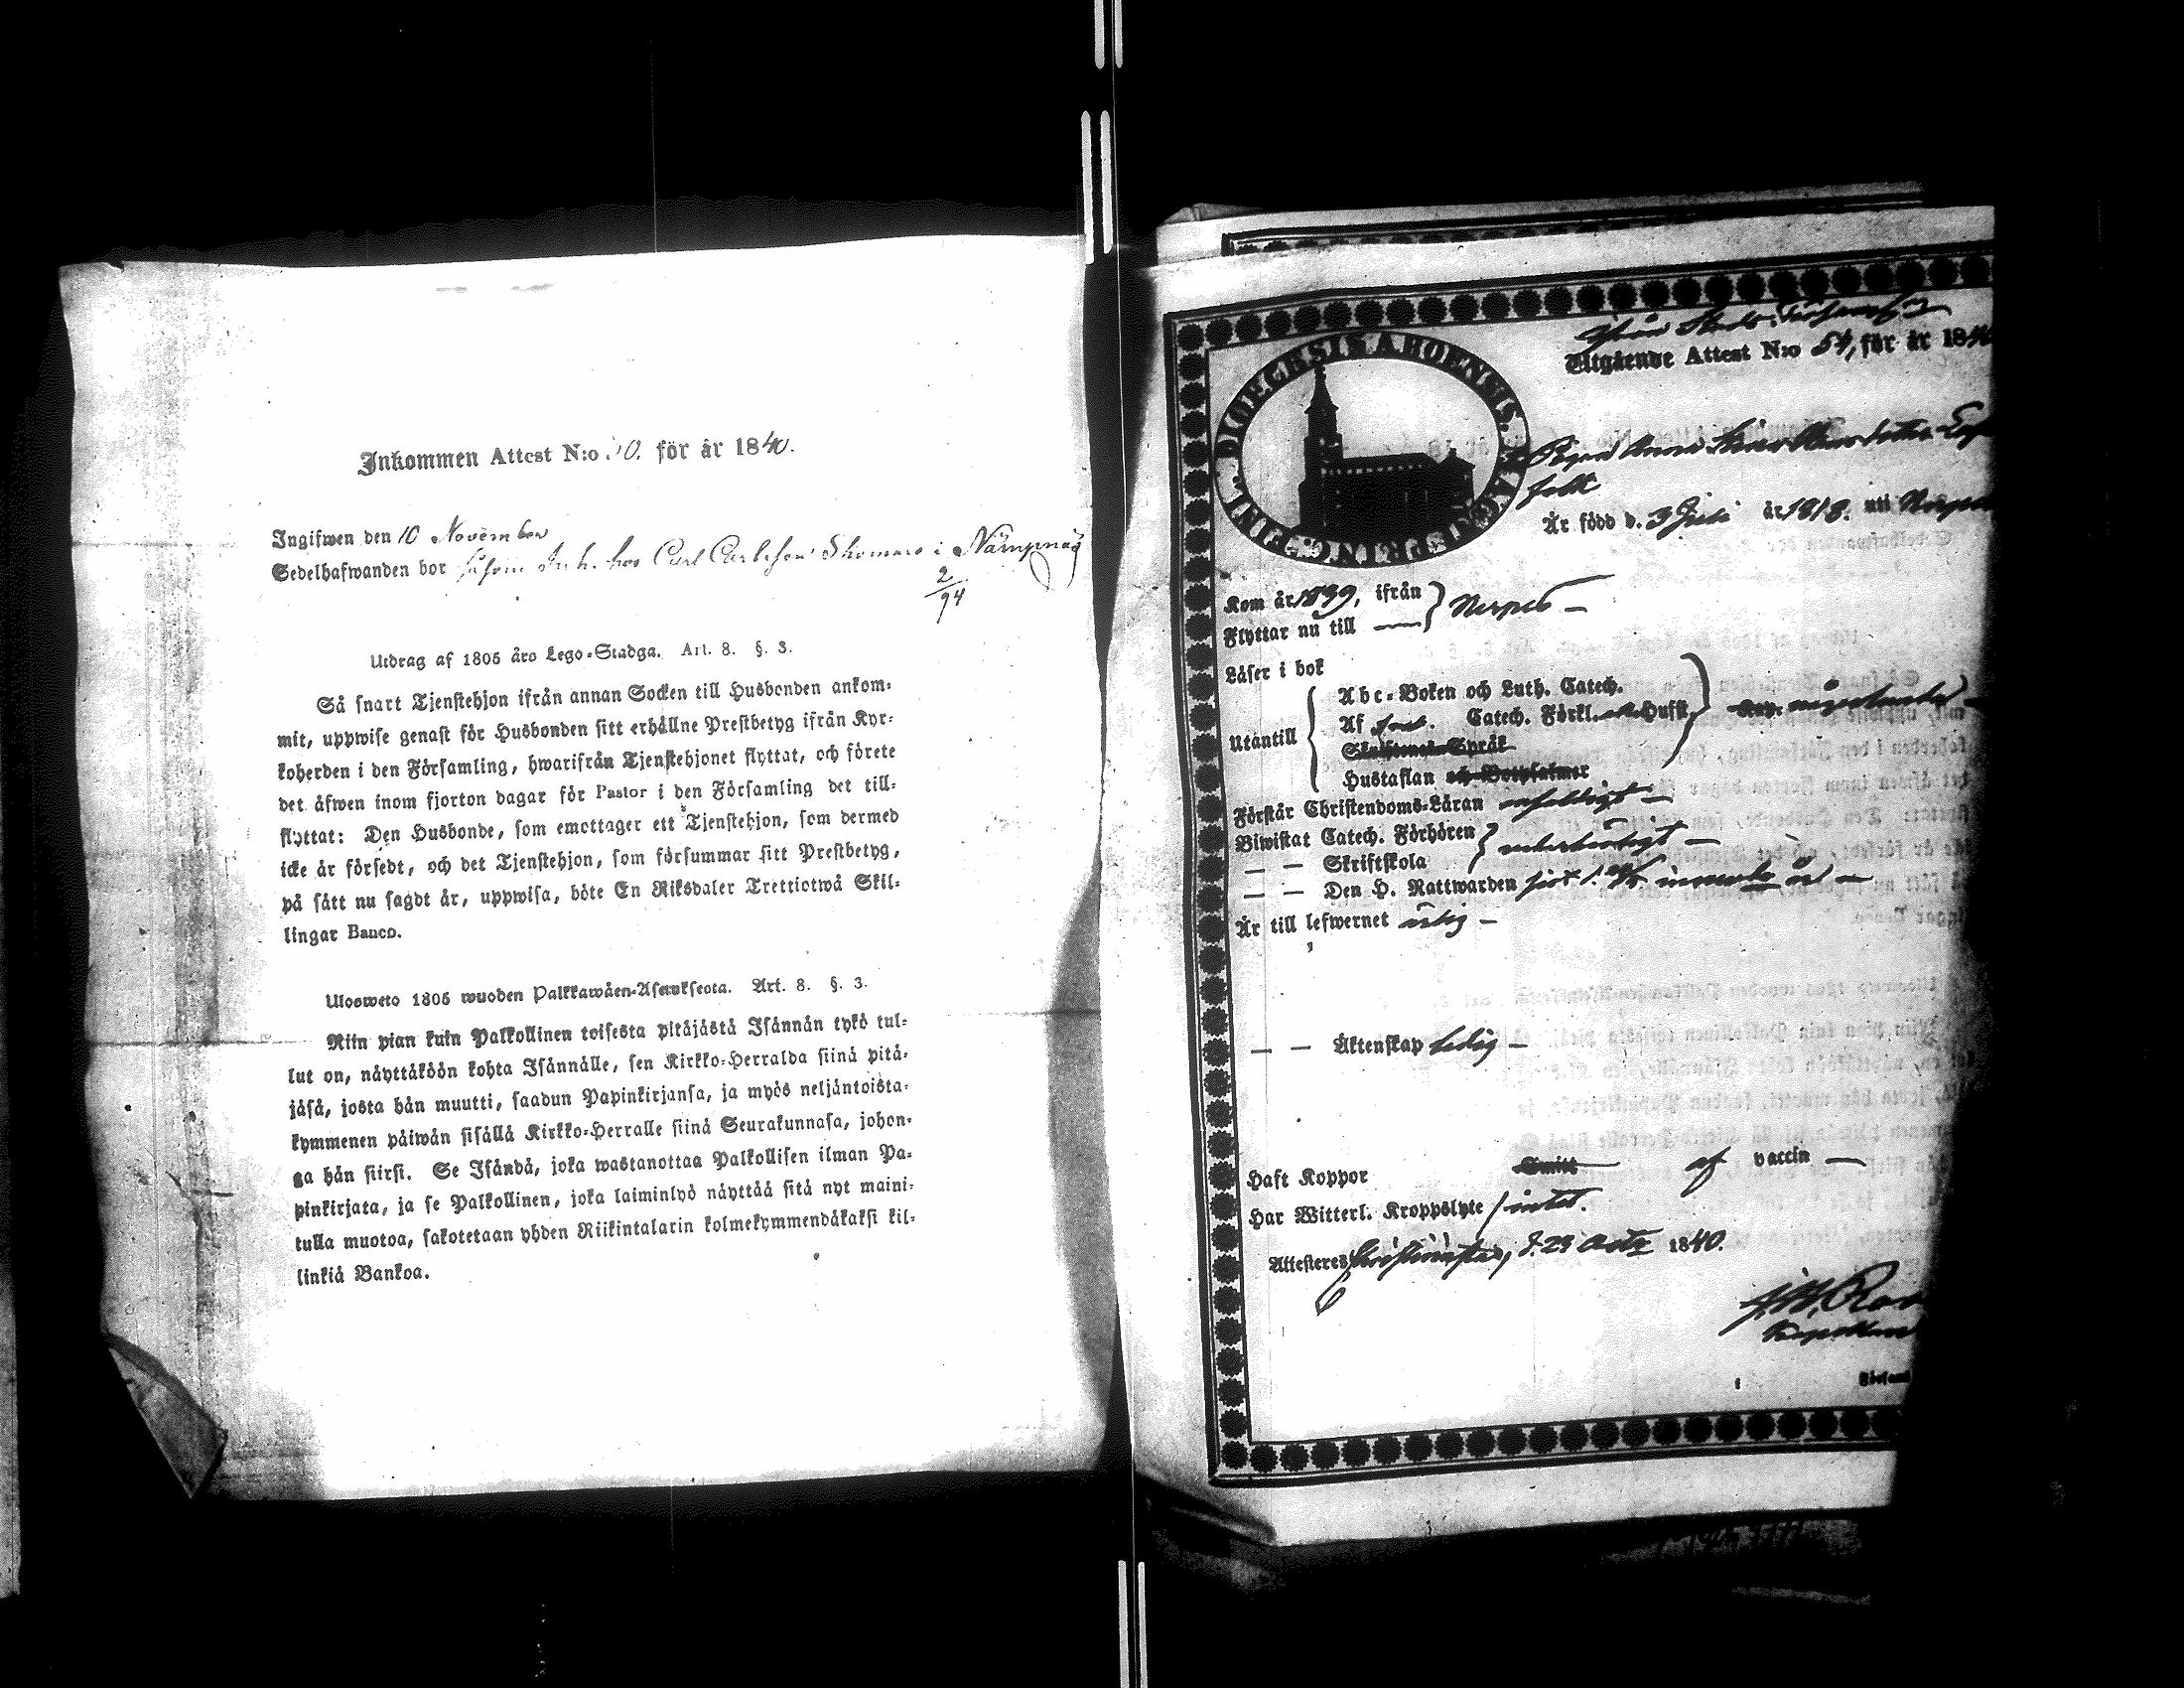 Inkommen Attest N:o 30. för år 1840.
Ingifwen den 10 November
Sedelhafwanden bor såsom Inh. hos Carl Carlsson Skomars i Nämpnäs
2/94
Utdrag af 1805 års Lego-Stadga. Art. 8. §. 3.
Så snart Tjenstehjon ifrån annan Socken till Husbonden ankom-
mit, uppwise genast för Husbonden sitt erhållne Prestbetyg ifrån Kyr-
koherden i den Församling, hwarifrån Tjenstehjonet flyttat, och förete
det äfwen inom fjorton dagar för Pastor i den Församling det till-
flyttat: Den Husbonde, som emottager ett Tjenstehjon, som dermed
icke är försedt, och det Tjenstehjon, som försummar sitt Prestbetyg,
på sätt nu sagdt är, uppwisa, böte En Riksdaler Trettiotwå Skil-
lingar Banco.
Ulosweto 1805 wuoden Palkkawäen-Asetuksesta. Art. 8. §. 3.
Niin pian kuin Palkollinen toisesta pitäjästä Isännän tykö tul-
lut on, näyttäköön kohta Isännälle, sen Kirkko-Herralda siinä pitä-
jäsä, josta hän muutti, saadun Papinkirjansa, ja myös neljäntoista-
kymmenen päiwän sisällä Kirkko-Herralle siinä Seurakunnasa, johon-
ga hän siirsi. Se Isändä, joka wastanottaa Palkollisen ilman Pa-
pinkirjata, ja se Palkollinen, joka laiminlyö näyttää sitä nyt maini-
tulla muotoa, sakotetaan yhden Riikintalarin kolmekymmendäkaksi kil-
linkiä Bankoa.
DIOECESIS ABOENSIS. MAGN. PRINC. FINL.
Utgående Attest N:o 54, för år 1840
Pigan Anna
född
Är född d. 3 Juli år 1818. uti
Kom år 1839, ifrån } Nerpes —
Flyttar nu till —
Läser i bok
Utantill
Abc-Boken och Luth. Catech.
Af Catech. Förkl. Husft
Skriftenes Språk
Hustaflan och Botpsalmer
Förstår Christendoms-Läran enfaldigt —
Biwistat Catech. Förhören } behörigt —
— — Skriftskola
— — Den H. Nattwarden innev. år —
Är till lefwernet ärlig —
— — Äktenskap ledig —
Haft Koppor af vaccin —
Har Witterl. Kroppslyte intet.
Attesteras Christinestad, d. 29 Octr 1840.